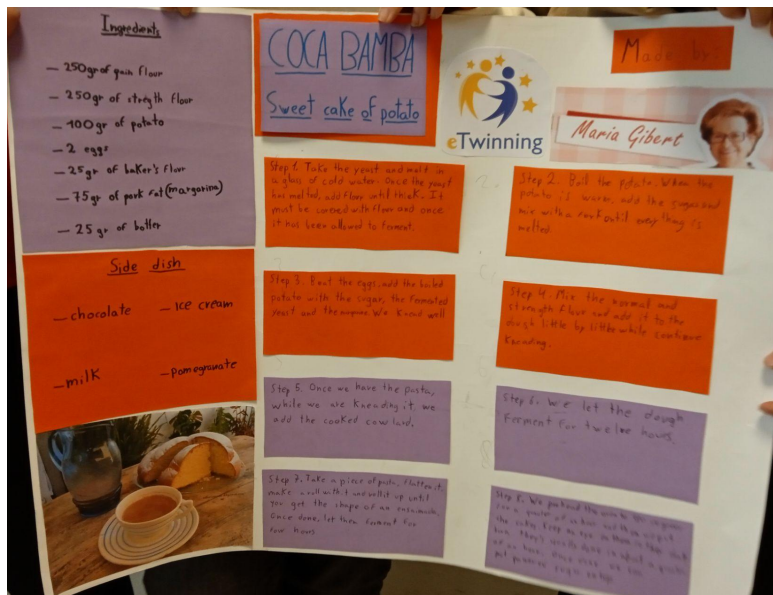 Ingredients
— 250gr of pain flour
— 250gr of stregth flour
— 100gr of potato
— 2 eggs
— 25gr of baker's flour
— 75gr of pork fat (margarina)
— 25gr of botter
Side dish
— chocolate
— ice cream
— milk
— pomegranate
COCA BAMBA
Sweet cake of potato
eTwinning
Made by:
Maria Gibert
Step 1. Take the yeast and melt in
a glass of cold water. Once the yeast
has melted, add flour until thick. It
must be covered with flour and once
it has been allowed to ferment.
Step 2. Boil the potato. When the
potato is warm, add the sugar and
mix with a fork until everything is
melted.
Step 3. Beat the eggs, add the boiled
potato with the sugar, the fermented
yeast and the We knead well
Step 4. Mix the normal and
strength flour and add it to the
dough little by little while continue
kneading.
Step 5. Once we have the pasta,
while we are kneading it, we
add the cooked cow lard.
Step 6. We let the dough
ferment for twelve hours.
Step 7. Take a piece of pasta, flatten it,
make a roll with it and roll it up until
you get the shape of an ensaimada.
Once done, let them ferment for
four hours
Step 8. We